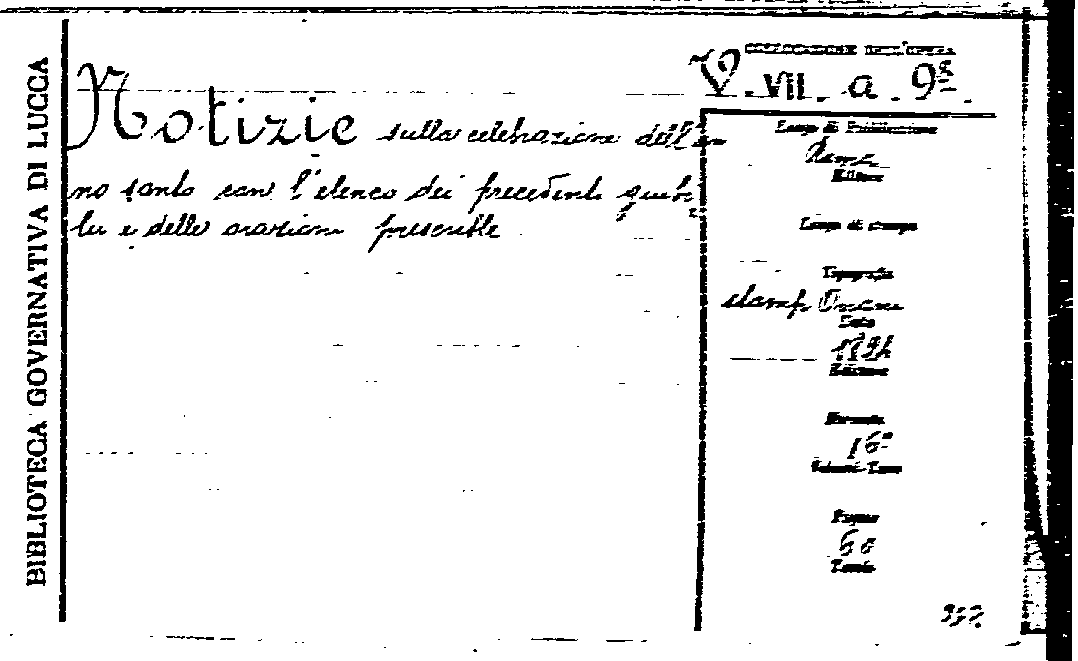 BIBLIOTECA GOVERNATIVA DI LUCCA
Notizie sulla celebrazione dell'an
no santo con l'elenco dei precedenti giubi
lei e delle orazioni prescritte
COLLOCAZIONE DELL'OPERA
V. VII. a. 9
Luogo di Pubblicazione
Roma
Editore
Luogo di stampa
Tipografia
stamp
Data
Edizione
Formato
16°
Volumi-Tomo
Pagine
60
Tavole